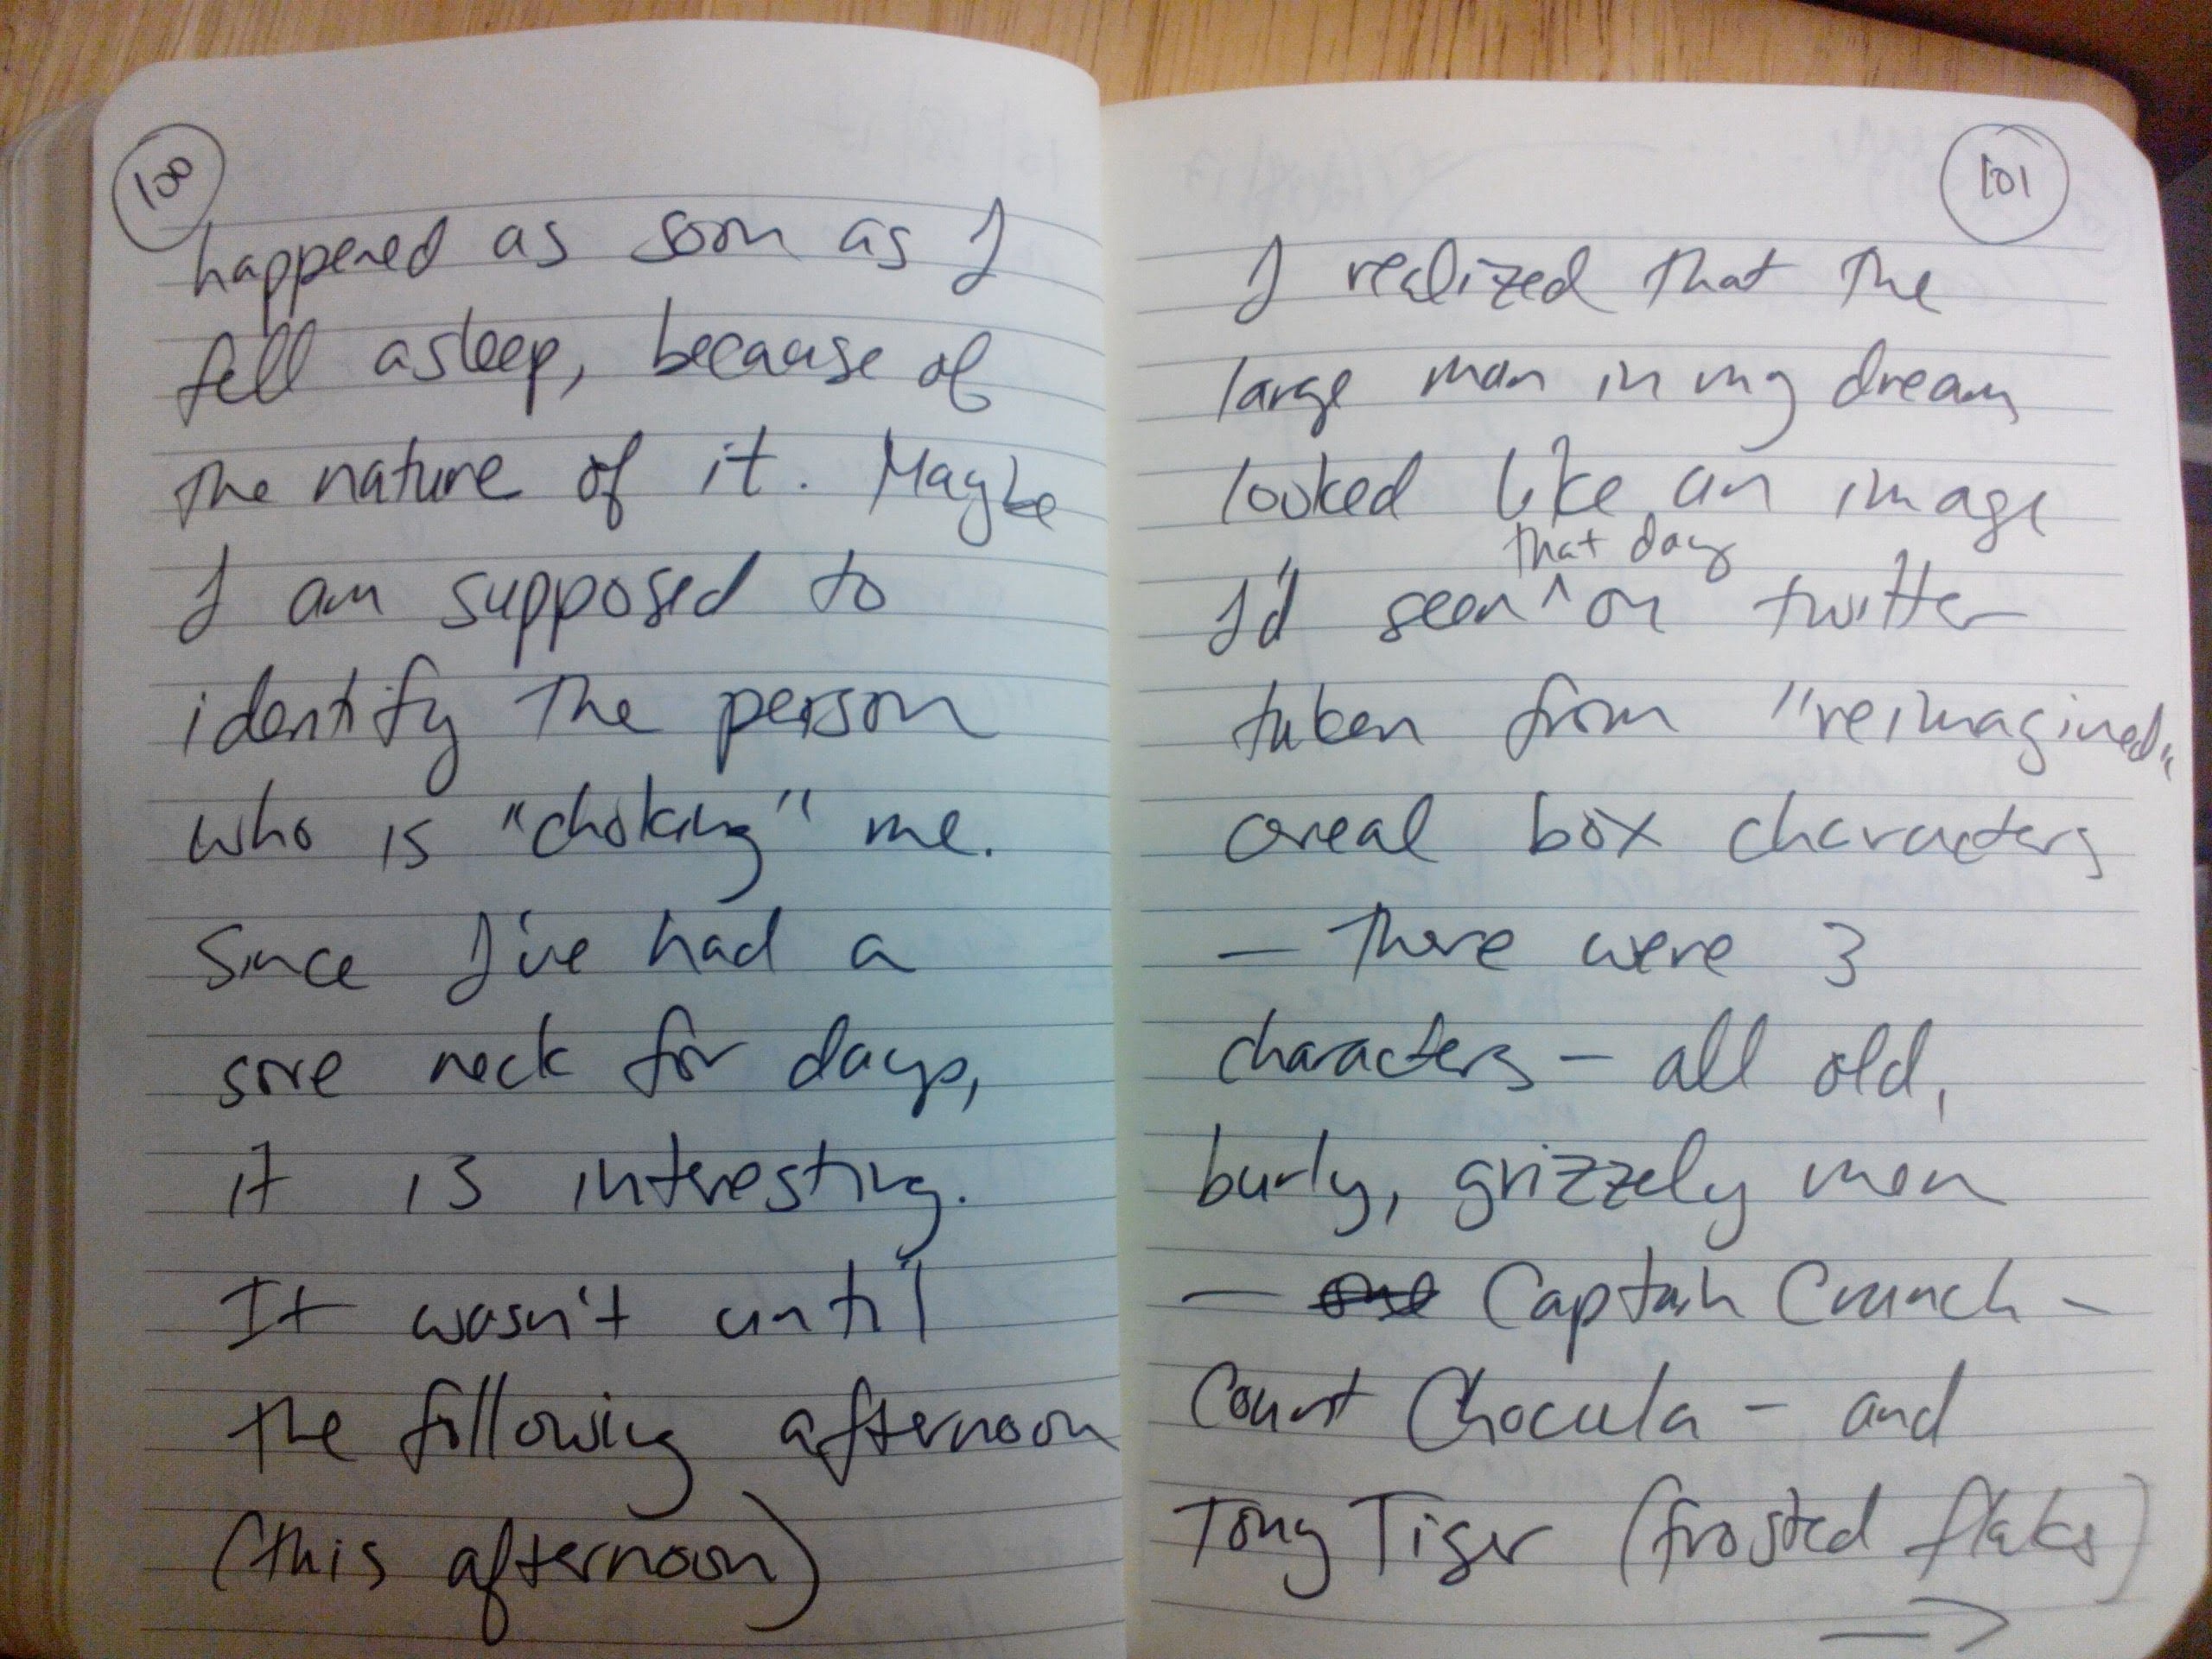 100
happened as soon as I
fell asleep, because of
the nature of it. Maybe
I am supposed to
identify the person
who is "choking" me.
Since I've had a
sore neck for days,
it is interesting.
It wasn't until
the following afternoon
(this afternoon)
101
I realized that the
large man in my dream
looked like an image
that day
I'd seen ^ on twitter
taken from "reimagined"
cereal box characters
— There were 3
characters — all old,
burly, grizzely men
— one Captain Crunch -
Count Chocula - and
Tony Tiger (frosted flakes)
→